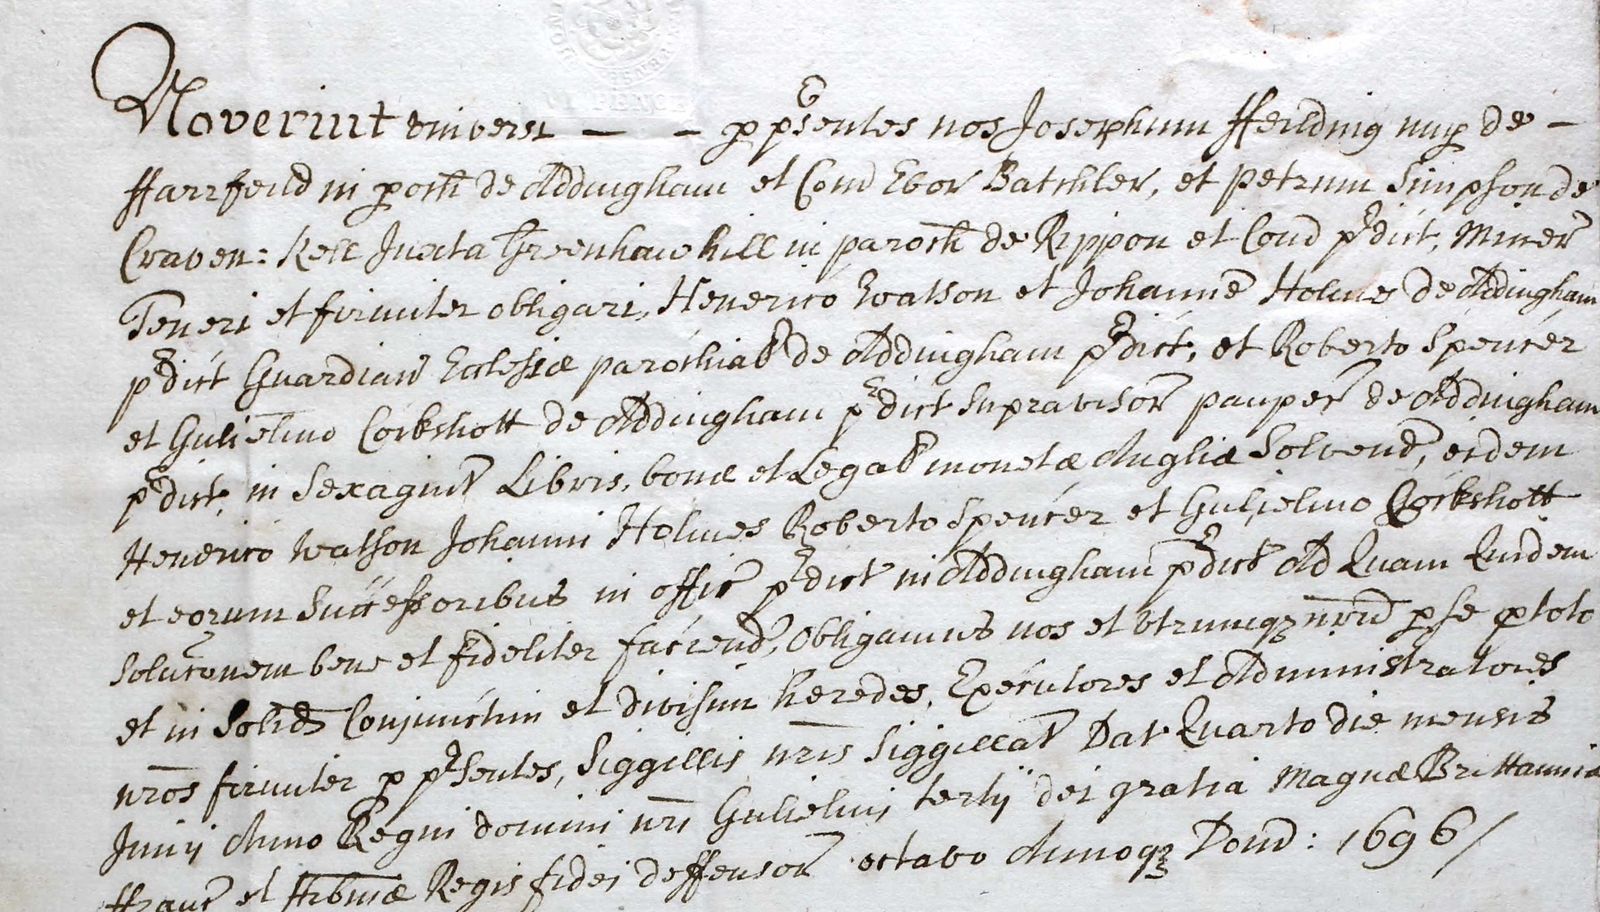 Noverint universi — — p pʳsentes nos Josephum ffeilding nup de —
ffarrfeild in poch de Addingham et Com Ebor Batchler, et Petrum Simpson de
Craven: Kell Juxta Greenhaw hill in paroch de Rippon et Com pʳdict, Miner
Teneri et firmiter obligari, Henerico Watson et Johanne Holmes de Addingham
pʳdict Guardian Ecclesiæ parochial de Addingham pʳdict, et Roberto Spencer
et Gulielmo Cockshott de Addingham pʳdict supravisor pauper de Addingham
pʳdict, in Sexagint Libris, bonæ et Legal monetæ Angliæ Solvend, eidem
Henerico Watson Johanni Holmes Roberto Spencer et Gulielmo Cockshott
et eorum Successoribus in offic pʳdict in Addingham pʳdict Ad Quam Quidem
Soluconem bene et fideliter faciend, Obligamus nos et Utrumqz nrm p se p toto
et in Solid Conjunctim et divisim heredes, Executores et Administratores
nros firmiter p pʳsentes, Siggillis nris Siggillat Dat Quarto die mensis
Junij Anno Regni domini nri Gulielmi tertij dei gratia Magnæ Brittannia
ffranc et Hibniæ Regis fidei deffensor octavo Annoqz Dom: 1696/